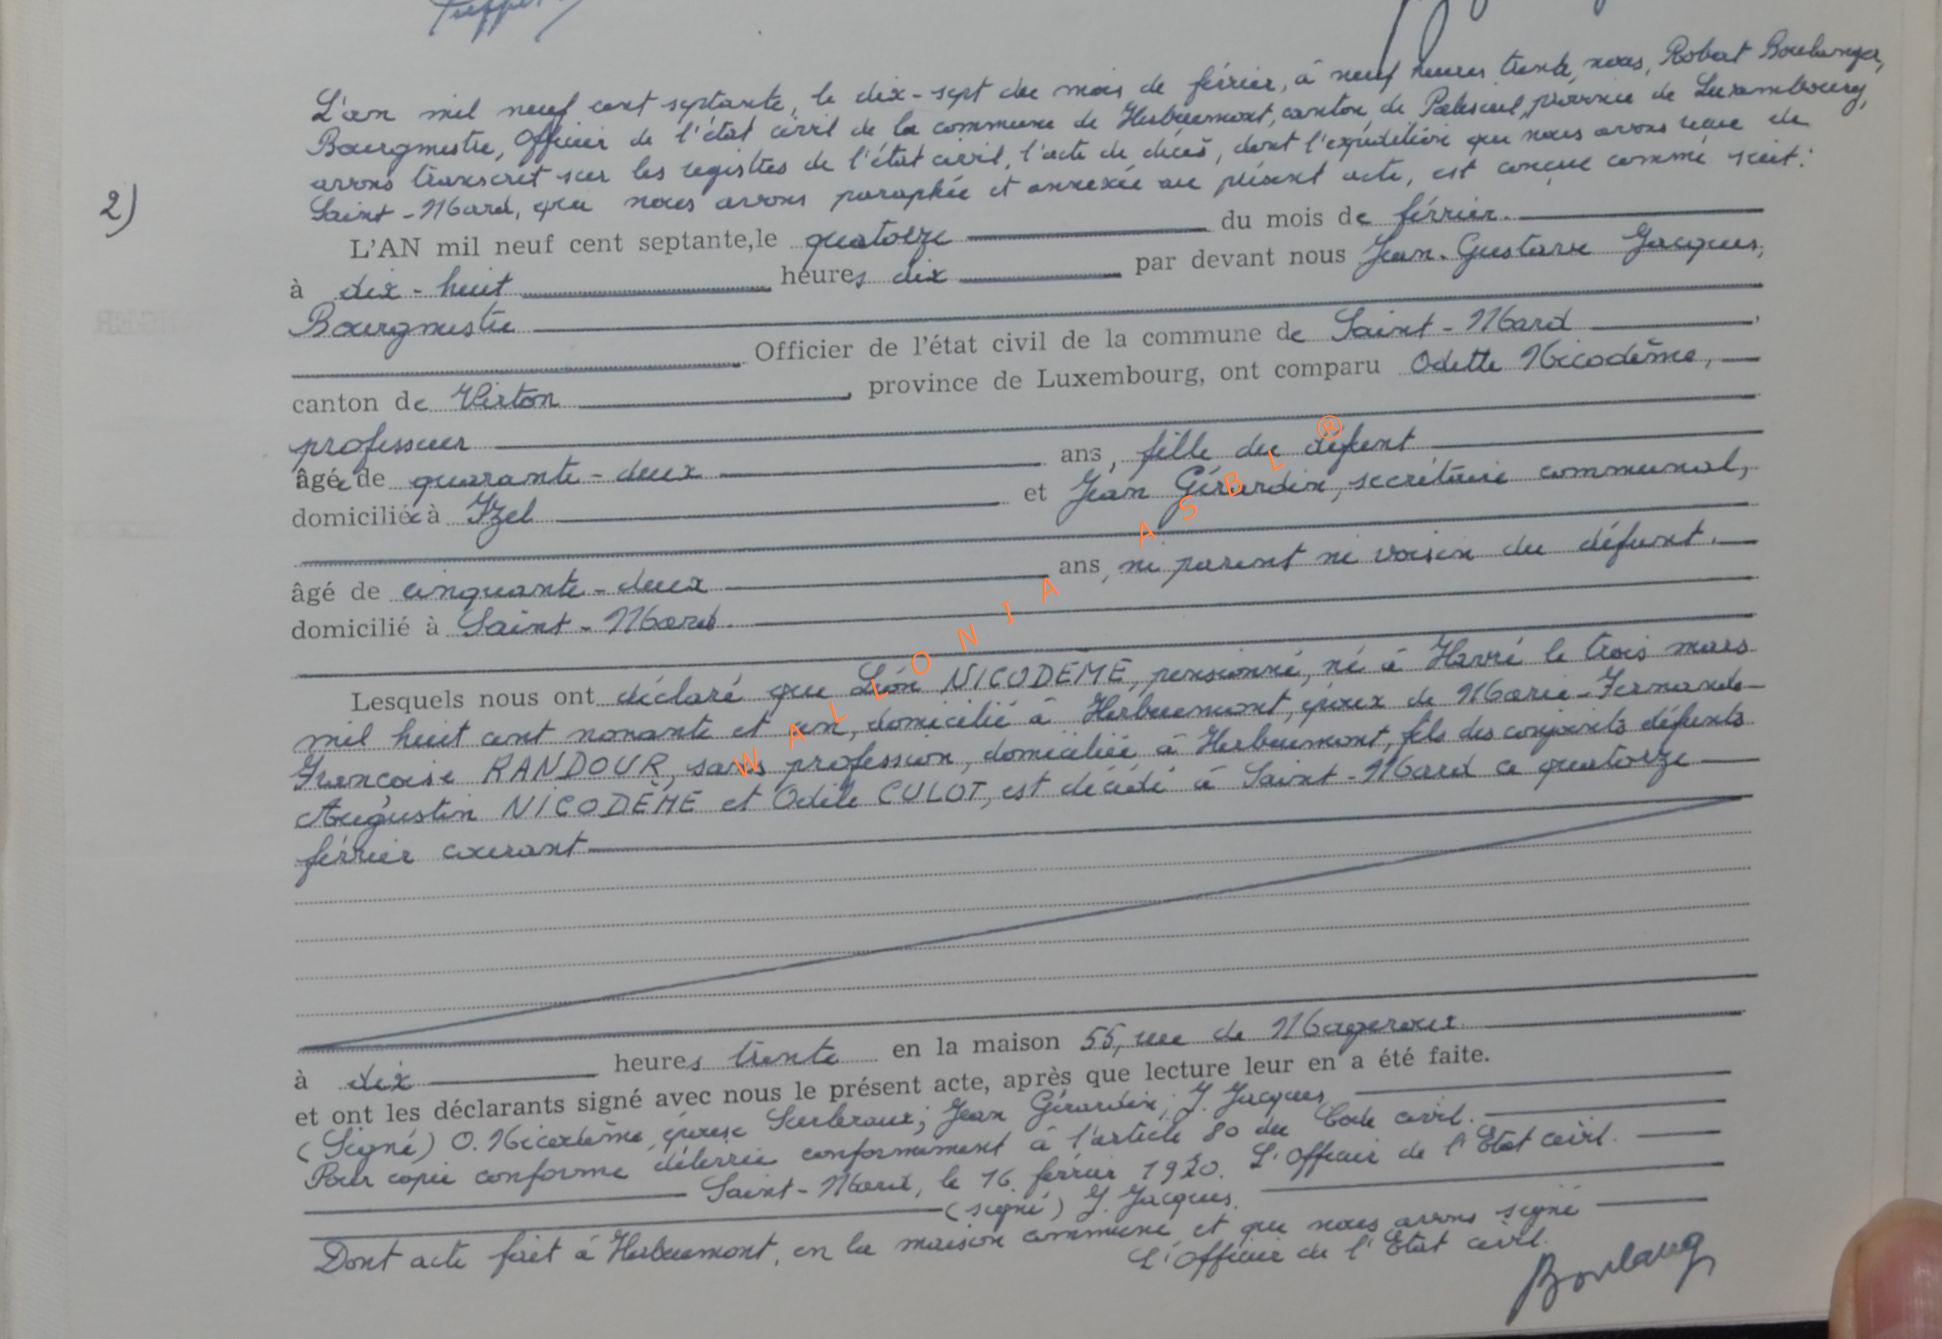 L'an mil neuf cent septante, le dix-sept du mois de février, à neuf heures trente, nous, Robert Boulanger,
Bourgmestre, Officier de l'état civil de la commune de Herbeumont, canton de Paliseul, province de Luxembourg,
avons transcrit sur les registres de l'état civil, l'acte de décès, dont l'expédition que nous avons reçue de
2) Saint-Mard, que nous avons paraphée et annexée au présent acte, est conçue comme suit:
L'AN mil neuf cent septante, le quatorze du mois de février.
à dix-huit heures dix par devant nous Jean-Gustave Jacques,
Bourgmestre
Officier de l'état civil de la commune de Saint-Mard
canton de Virton, province de Luxembourg, ont comparu Odette Nicodème,
professeur
âgée de quarante-deux ans, fille du défunt
domiciliée à Izel et Jean Gérardin, secrétaire communal,
âgé de cinquante-deux ans, ni parent ni voisin du défunt.
domicilié à Saint-Mard.
Lesquels nous ont déclaré que Léon NICODEME, pensionné, né à Havré le trois mars
mil huit cent nonante et un, domicilié à Herbeumont, époux de Marie-Fernande-
Françoise RANDOUR, sans profession, domiciliée à Herbeumont, fils des conjoints défunts
Augustin NICODÈME et Odile CULOT, est décédé à Saint-Mard ce quatorze
février courant
à dix heures trente en la maison 55, rue de Mageroux
et ont les déclarants signé avec nous le présent acte, après que lecture leur en a été faite.
(Signé) O. Nicodème, épouse ; Jean Gérardin; J. Jacques
Pour copie conforme délivrée conformément à l'article 80 du Code civil.
Saint-Mard, le 16 février 1970. L'Officier de l'Etat civil.
(signé) J. Jacques.
Dont acte fait à Herbeumont, en la maison commune et que nous avons signé
L'Officier de l'Etat civil.
Boulang
WALLONIA ASBL ®